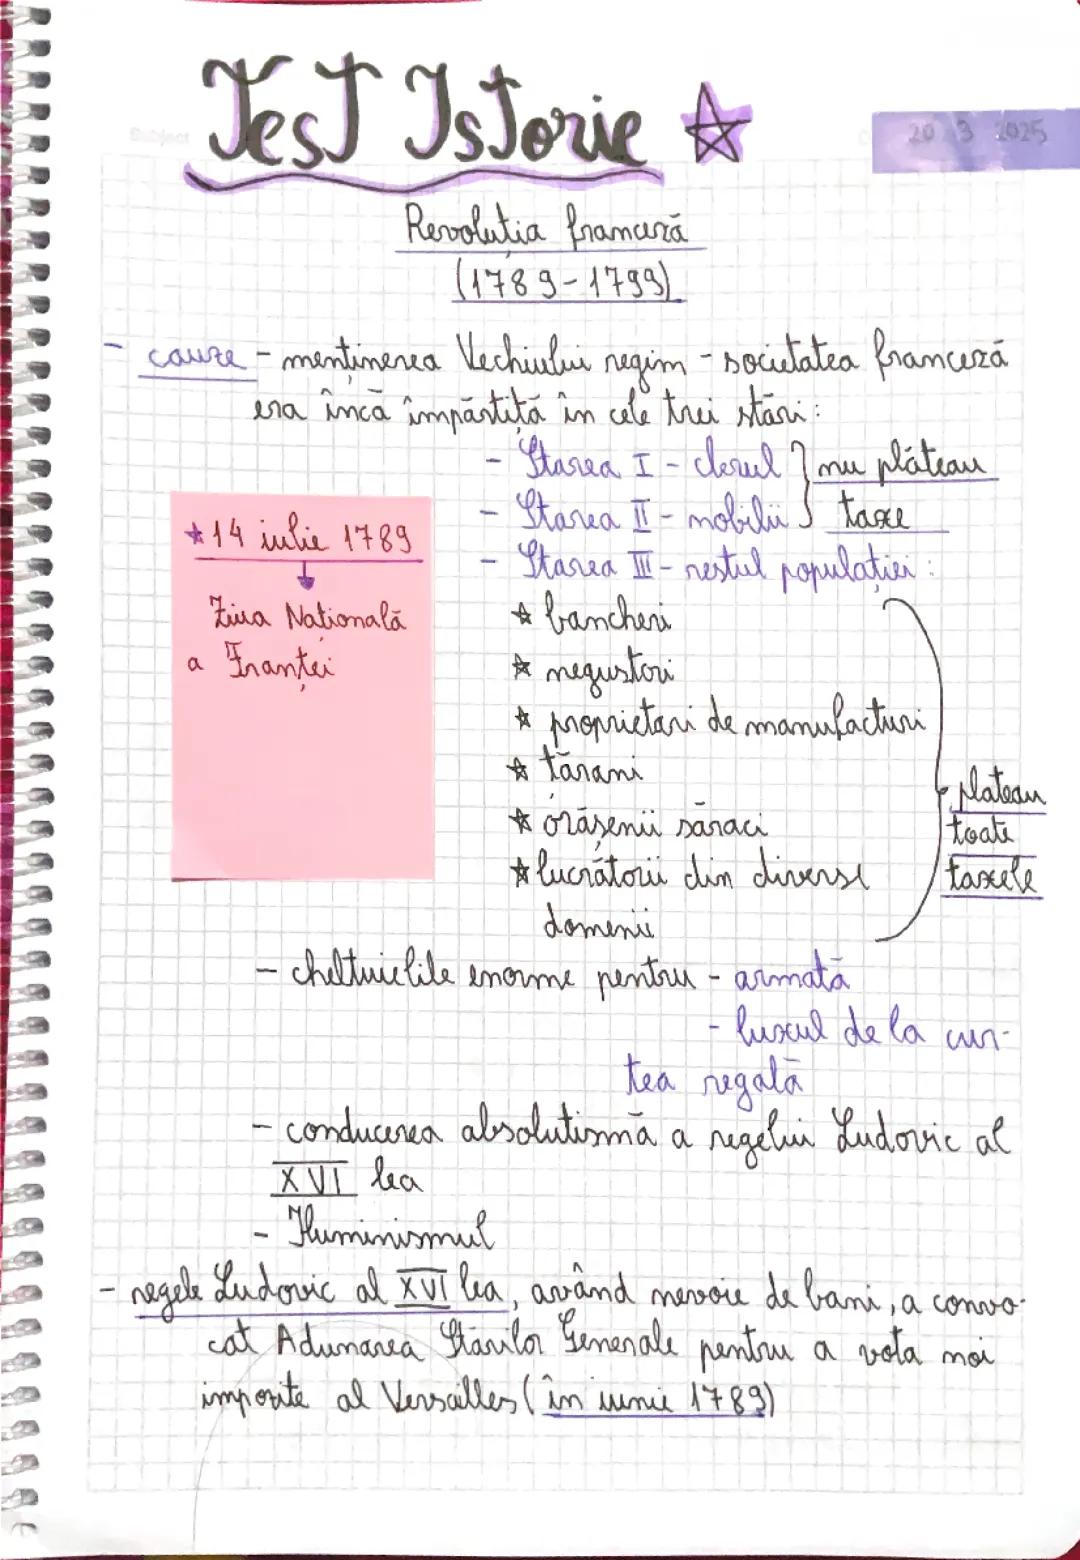 Test Istorie
Subject
20 3 2025
Revoluția franceză
(1789-1799)
- cauze - menținerea Vechiului regim - societatea franceză
era încă împărțită în cele trei stări:
- Starea I - clerul } nu plăteau
- Starea II - nobilii } taxe
- Starea III - restul populației:
★ 14 iulie 1789
↓
Ziua Națională
a Franței
☆ bancheri
☆ negustori
☆ proprietari de manufacturi
☆ țărani
☆ orășenii săraci
☆ lucrătorii din diverse
domenii
plateau
toate
taxele
- cheltuielile enorme pentru - armată
- luxul de la cur-
tea regală
- conducerea absolutismă a regelui Ludovic al
XVI lea
- Iluminismul
- regele Ludovic al XVI lea, având nevoie de bani, a convo-
cat Adunarea Stărilor Generale pentru a vota noi
impozite al Versailles (în iunie 1789)